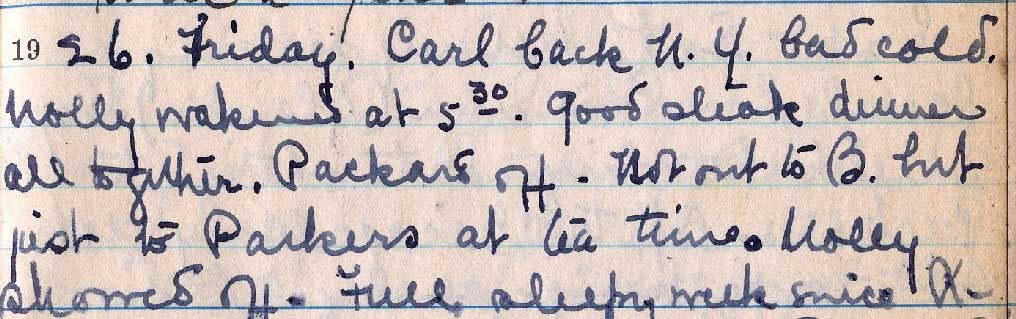 1926. Friday. Carl back N.Y. bad cold.
Molly wakened at 5³⁰. Good steak dinner
all together. Packard off - Not out to B. but
just to Parkers at tea time. Molly
showed off - Full, sleepy week since X-